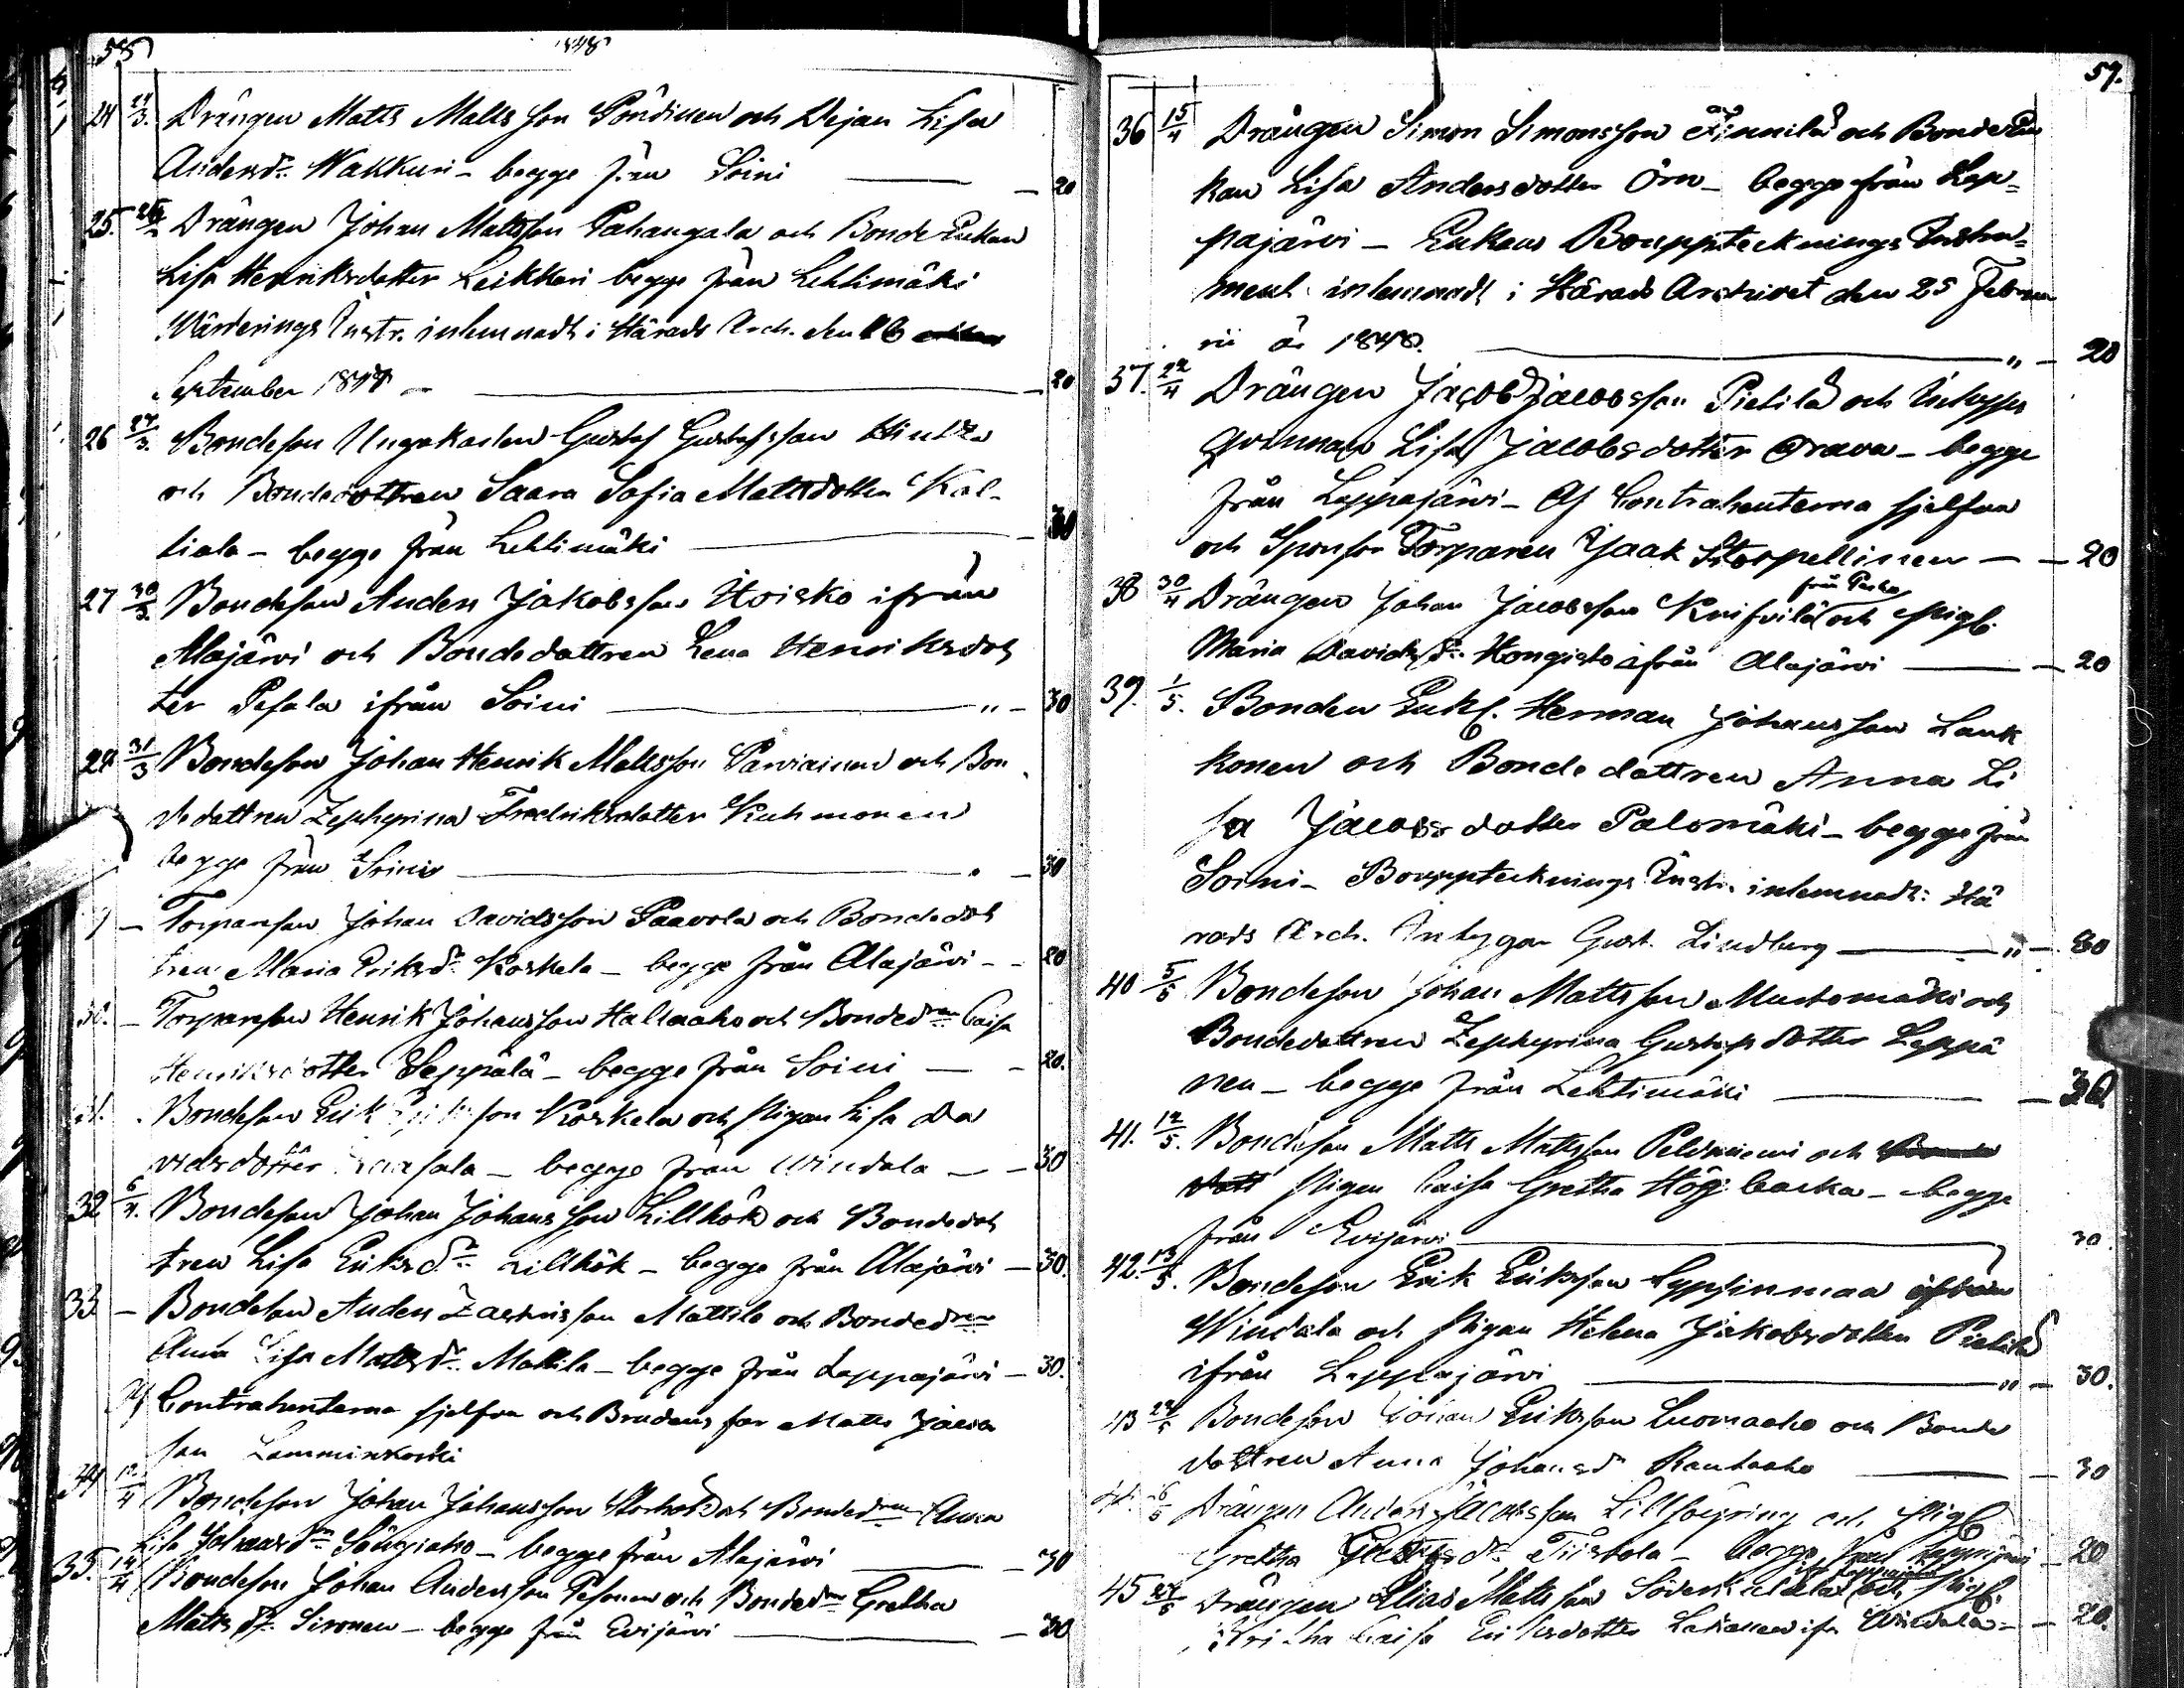 58
1848
24 24/3. Drängen Matts Mattsson Pöndinen och Pigan Lisa
Andersdr. Wakkuri - begge från Soini — 20
25. Drängen Johan Mattsson Pahangala och Bonde Enkan
Lisa Henriksdotter Leikkari begge från Lehtimäki
Värderings Instr. inlemnadt i Härads Arch. den 26
September 1847 — 20
26 27/3. Bondeson Ungakarlen Gustaf Gustafsson Hintza
och Bondedottren Saara Sofia Mattsdotter Kal-
liala - begge från Lehtimäki — 30
27 30/3. Bondeson Anders Jakobsson Hoisko ifrån
Alajärvi och Bondedottren Lena Henriksdot
ter Pesala ifrån Soini — " - 30
28 31/3 Bondeson Johan Henrik Mattsson Parviainen och Bon
dedottren Zephyrina Fredriksdotter Kuhmonen
begge från Soini — 30
— Torparson Johan Davidsson Paavola och Bondedot
tren Maria Eriksdr. Koskela - begge från Alajärvi - - 20
30. — Torparson Henrik Johansson Hallaaho och Bondedren Caisa
Henriksdotter Seppälä - begge från Soini — - 20.
31. Bondeson Erik Eriksson Koskela och Pigan Lisa Da
vidsdotter - begge från Windala — - 30
32 6/4. Bondeson Johan Johansson Lillkök och Bondedot
tren Lisa Eriksdr. Lillkök - begge från Alajärvi - 30.
33 — Bondeson Anders Zachrisson Mattila och Bondedren
Anna Lisa Mattsdr. Mattila - begge från Lappajärvi - 30.
Af Contrahenterna sjelfva och Brudens far Matts Jacobs
son Lamminkoski
34 12/4 Bondeson Johan Johansson och Bondedren Anna
Lisa Johansdr. Sängiaho - begge från Alajärvi — 30
35. 14/4 Bondeson Johan Andersson Pesonen och Bondedren Gretha
Mattsdr. Sironen - begge från Evijärvi — 30
59.
36 15/4 Drängen Simon Simonsson Finnilä och Bonde En
kan Lisa Andersdotter Örn - begge från Lap=
pajärvi - Enkans Boupptecknings Instru=
ment inlemnadt i Härads Archivet den 25 Februa
rii år 1848. — " - 20
37. 22/4 Drängen Jacob Jacobsson Pietilä och Inhyses
qvinnan Lisa Jacobsdotter Orava - begge
från Lappajärvi - Af Contrahenterna sjelfva
och Sponsor Torparen Jaak Storpellinen — - 20
38 30/4 Drängen Johan Jacobsson Knifvilä från Perho och Pigb.
Maria Davidsdr. Hongisto ifrån Alajärvi — - 20
39. 1/5. Bonden Enkl. Herman Johansson Lauk
konen och Bondedottren Anna Li
sa Jacobsdotter Palomäki - begge från
Soini - Boupptecknings Instr. inlemnadt i Hä
rads Arch. Intygar Gust. Lindberg — " - 30
40 5/5 Bondeson Johan Mattsson Mustomäki och
Bondedottren Zephyrina Gustafsdotter Leppä
nen - begge från Lehtimäki — - 30
41. 12/5. Bondeson Matts Mattsson Peldoniemi och Bonde
dott Pigan Caisa Gretha Högbacka - begge
från Evijärvi — 30.
42. 13/5. Bondeson Erik Eriksson Syysinmaa ifrån
Windala och Pigan Helena Jakobsdotter Pietilä
ifrån Lappajärvi — " - 30.
43 Bondeson Johan Eriksson Luomaaho och Bonde
dottren Anna Johansdr. Rautaaho — - 30
Drängen Anders Jacobsson och Pigb.
Gretha Tiistola - begge från Lappajärvi - 20
45 27/5 Drängen Elias Mattsson if. Lappajärvi och Pigb.
Caisa Eriksdotter if. Windala - - 20.